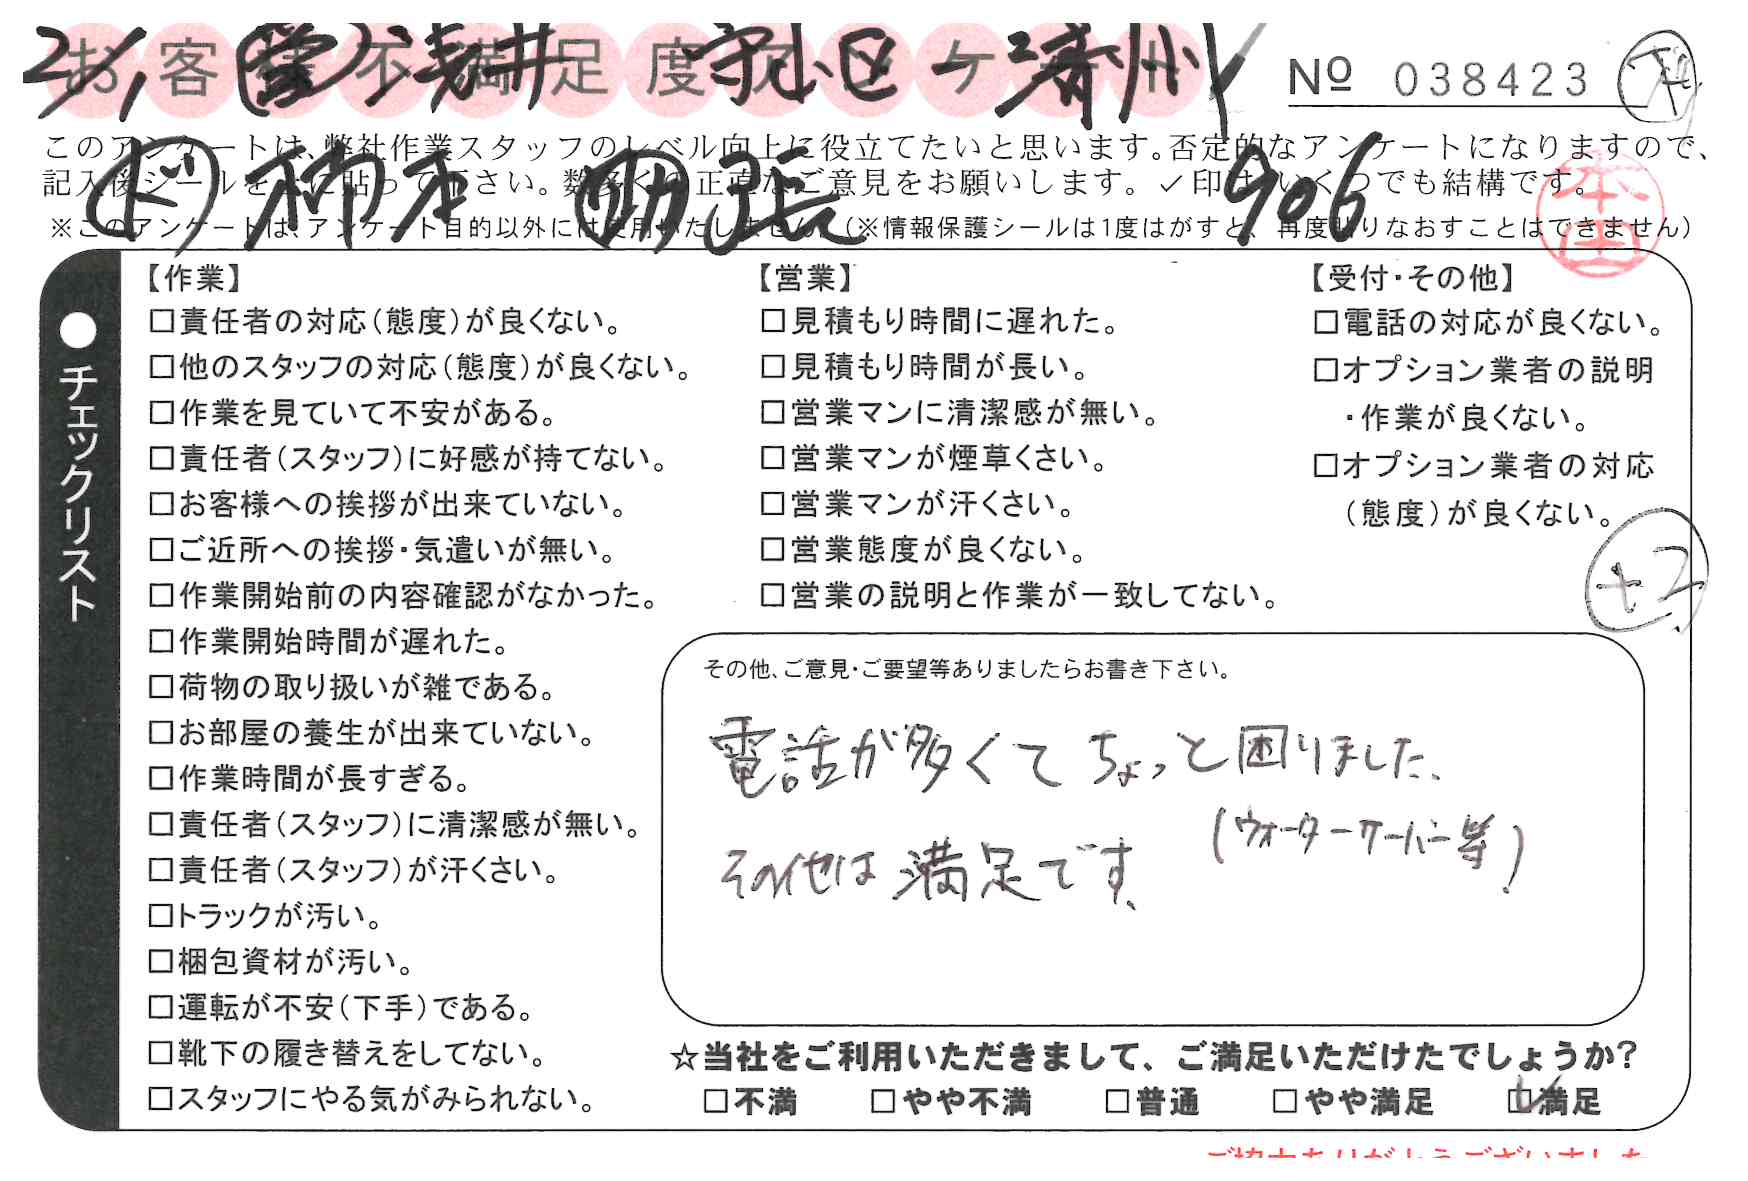 お客様不満足度アンケート
2/1 ㊂ 浅井 守山区→済州
№ 038423
このアンケートは、弊社作業スタッフのレベル向上に役立てたいと思います。否定的なアンケートになりますので、
記入後シールを上に貼って下さい。数多くの正直なご意見をお願いします。✓印は、いくつでも結構です。
※このアンケートは、アンケート目的以外には使用いたしません。(※情報保護シールは1度はがすと、再度貼りなおすことはできません)
ド 柳本 助 張 906
本田
●チェックリスト
【作業】
□責任者の対応(態度)が良くない。
□他のスタッフの対応(態度)が良くない。
□作業を見ていて不安がある。
□責任者(スタッフ)に好感が持てない。
□お客様への挨拶が出来ていない。
□ご近所への挨拶・気遣いが無い。
□作業開始前の内容確認がなかった。
□作業開始時間が遅れた。
□荷物の取り扱いが雑である。
□お部屋の養生が出来ていない。
□作業時間が長すぎる。
□責任者(スタッフ)に清潔感が無い。
□責任者(スタッフ)が汗くさい。
□トラックが汚い。
□梱包資材が汚い。
□運転が不安(下手)である。
□靴下の履き替えをしてない。
□スタッフにやる気がみられない。
【営業】
□見積もり時間に遅れた。
□見積もり時間が長い。
□営業マンに清潔感が無い。
□営業マンが煙草くさい。
□営業マンが汗くさい。
□営業態度が良くない。
□営業の説明と作業が一致してない。
【受付・その他】
□電話の対応が良くない。
□オプション業者の説明
・作業が良くない。
□オプション業者の対応
(態度)が良くない。
+2
その他、ご意見・ご要望等ありましたらお書き下さい。
電話が多くてちょっと困りました、
(ウォーターサーバー等)
その他は満足です、
☆当社をご利用いただきまして、ご満足いただけたでしょうか?
□不満 □やや不満 □普通 □やや満足 ☑満足
ご協力ありがとうございました